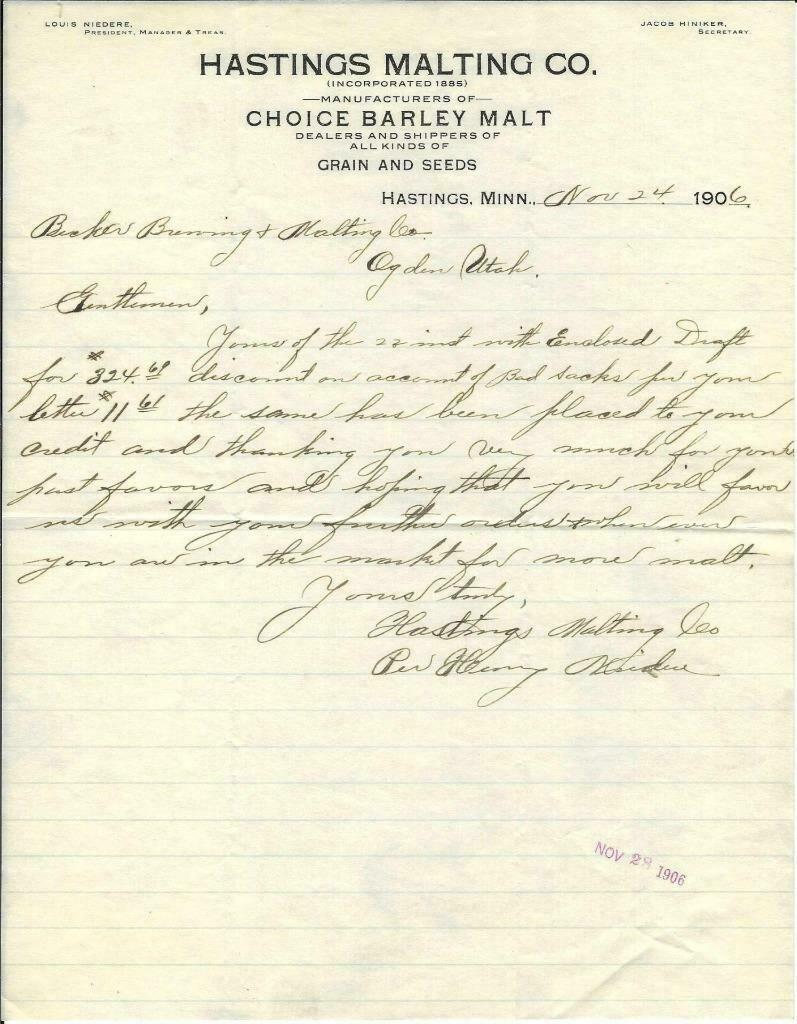 LOUIS NIEDERE,
PRESIDENT, MANAGER & TREAS.
JACOB HINIKER,
SECRETARY.
HASTINGS MALTING CO.
(INCORPORATED 1885)
—MANUFACTURERS OF—
CHOICE BARLEY MALT
DEALERS AND SHIPPERS OF
ALL KINDS OF
GRAIN AND SEEDS
HASTINGS, MINN., Nov 24 1906.
Becker Brewing & Malting Co.
Ogden Utah.
Gentlemen,
Yours of the 22 inst with Enclosed Draft
for $324.69 discount on account of Bad sacks per your
letter $11 61 the same has been placed to your
credit and thanking you very much for your
past favors and hoping that you will favor
us with your further orders when ever
you are in the market for more malt.
Yours truly,
Hastings Malting Co
Per Henry Niedere
NOV 28 1906